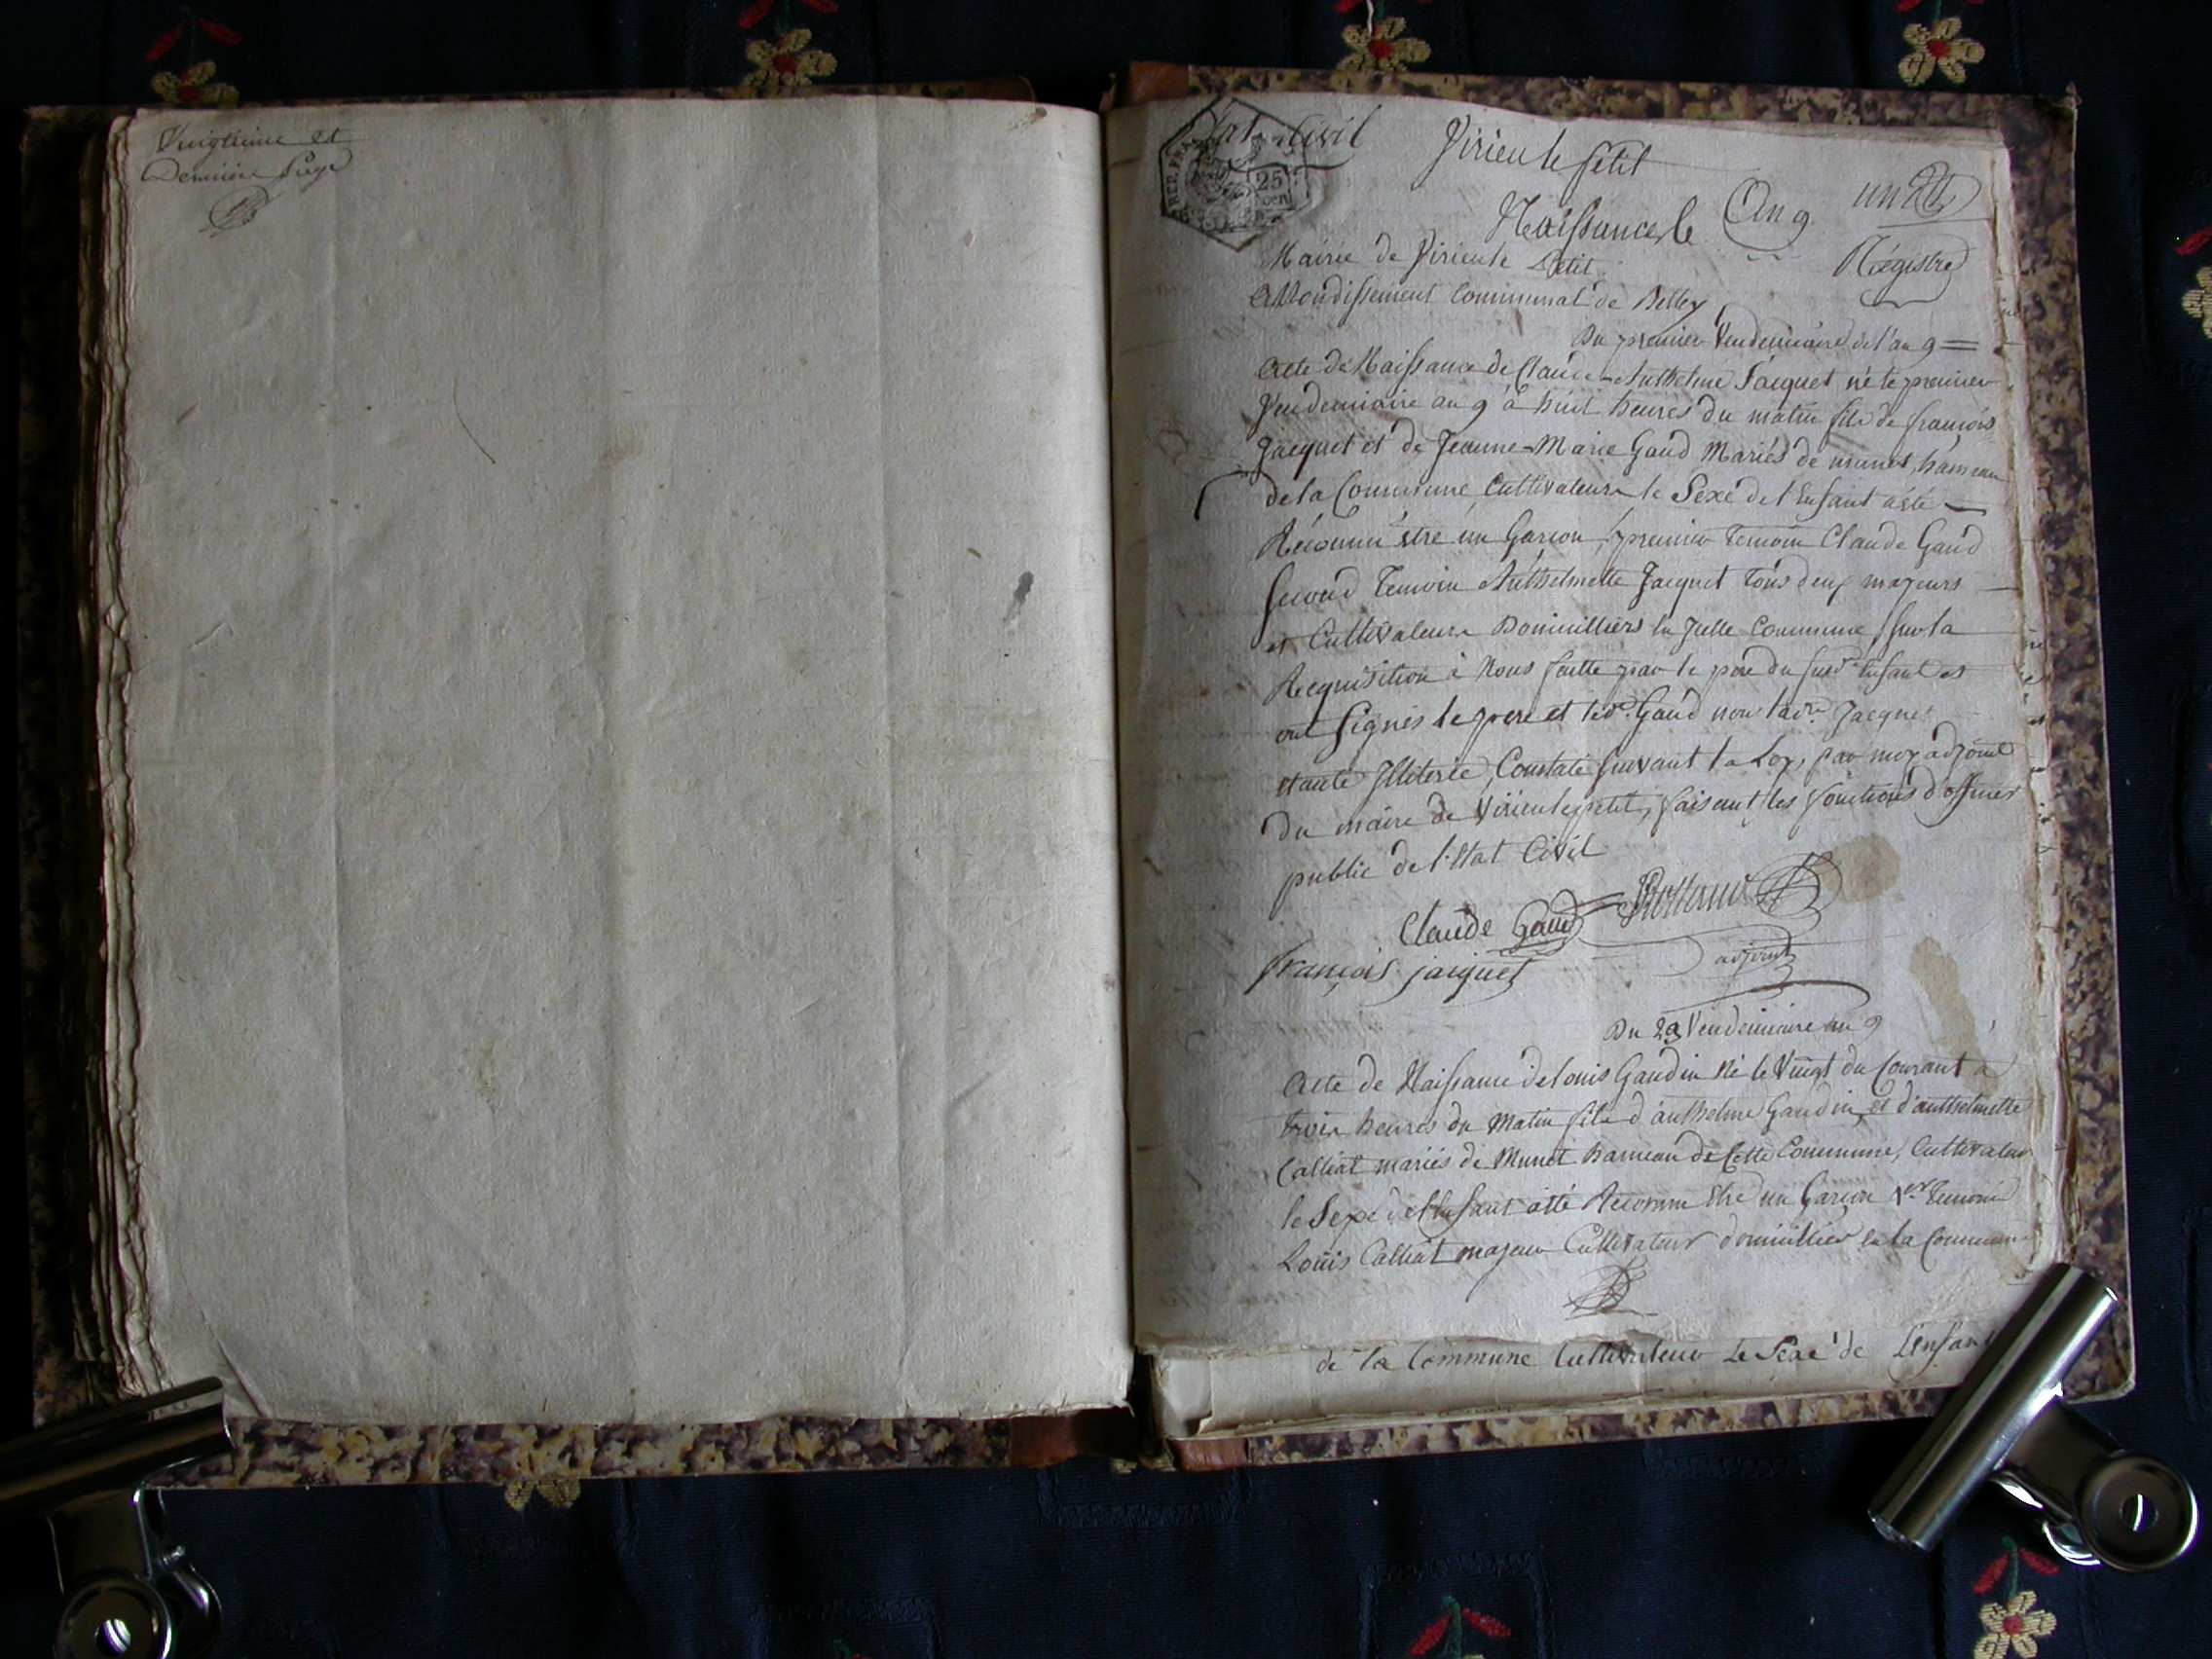 Vingtieme et
Derniere Page
Etat Civil
Virieu le petit
REP. FRA
25
cen
Naissances An 9
Mairie de Virieu le petit
Régistre
Arrondissement Communal de Belley
Du premier Vendemiaire de l'an 9 =
Acte de Naissance de Claude-Anthelme Jacquet né le premier
Vendemiaire an 9 à huit heures du matin fils de françois
Jacquet et de Jeanne-Marie Gaud Mariés de munet, hameau
de la Commune Cultivateurs le Sexe de l'Enfant a été
Réconnu être un Garcon, premier Temoin Claude Gaud
Second Temoin Anthelmette Jacquet tous deux majeurs
et Cultivateurs Domicilliers en Jcelle Commune, sur la
Requisition à Nous faitte par le père du susd. Enfant et
ont Signés le pere et led. Gaud non lad.e Jacquet
étante Jlliterée, Constaté suivant la Loy, par moy adjoint
du maire de Virieulepetit, faisant les fonctions d'officier
public de l'Etat Civil
Claude Gaud
françois jacquet
adjoint
Du 29 Vendemiaire an 9
Acte de Naissance de louis Gaudin Né le Vingt du Courant à
trois heures du Matin fils d'anthelme Gaudin, et d'anthelmette
Calliat mariés de Munet hameau de Cette Commune, Cultivateurs
le Sexe de l'Enfant a été Reconnu Etre un Garcon 1er Temoin
Louis Calliat majeur Cultivateur domicillier en la Commune
de la Commune Cultivateur Le Sexe de L'enfan